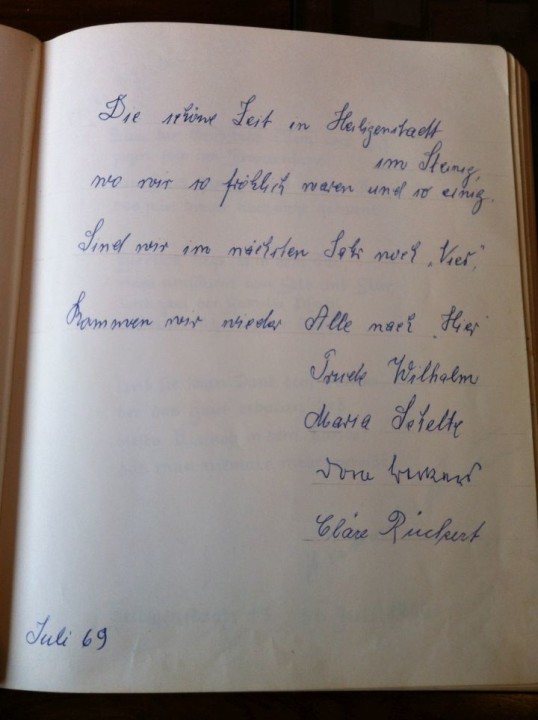 Die schöne Zeit in Heiligenstadt
im Steinig,
wo wir so fröhlich waren und so einig.
Sind wir im nächsten Jahr noch „Vier",
Kommen wir wieder Alle nach „Hier"
Trude Wilhelm
Maria
Dora
Cläre Rückert
Juli 69